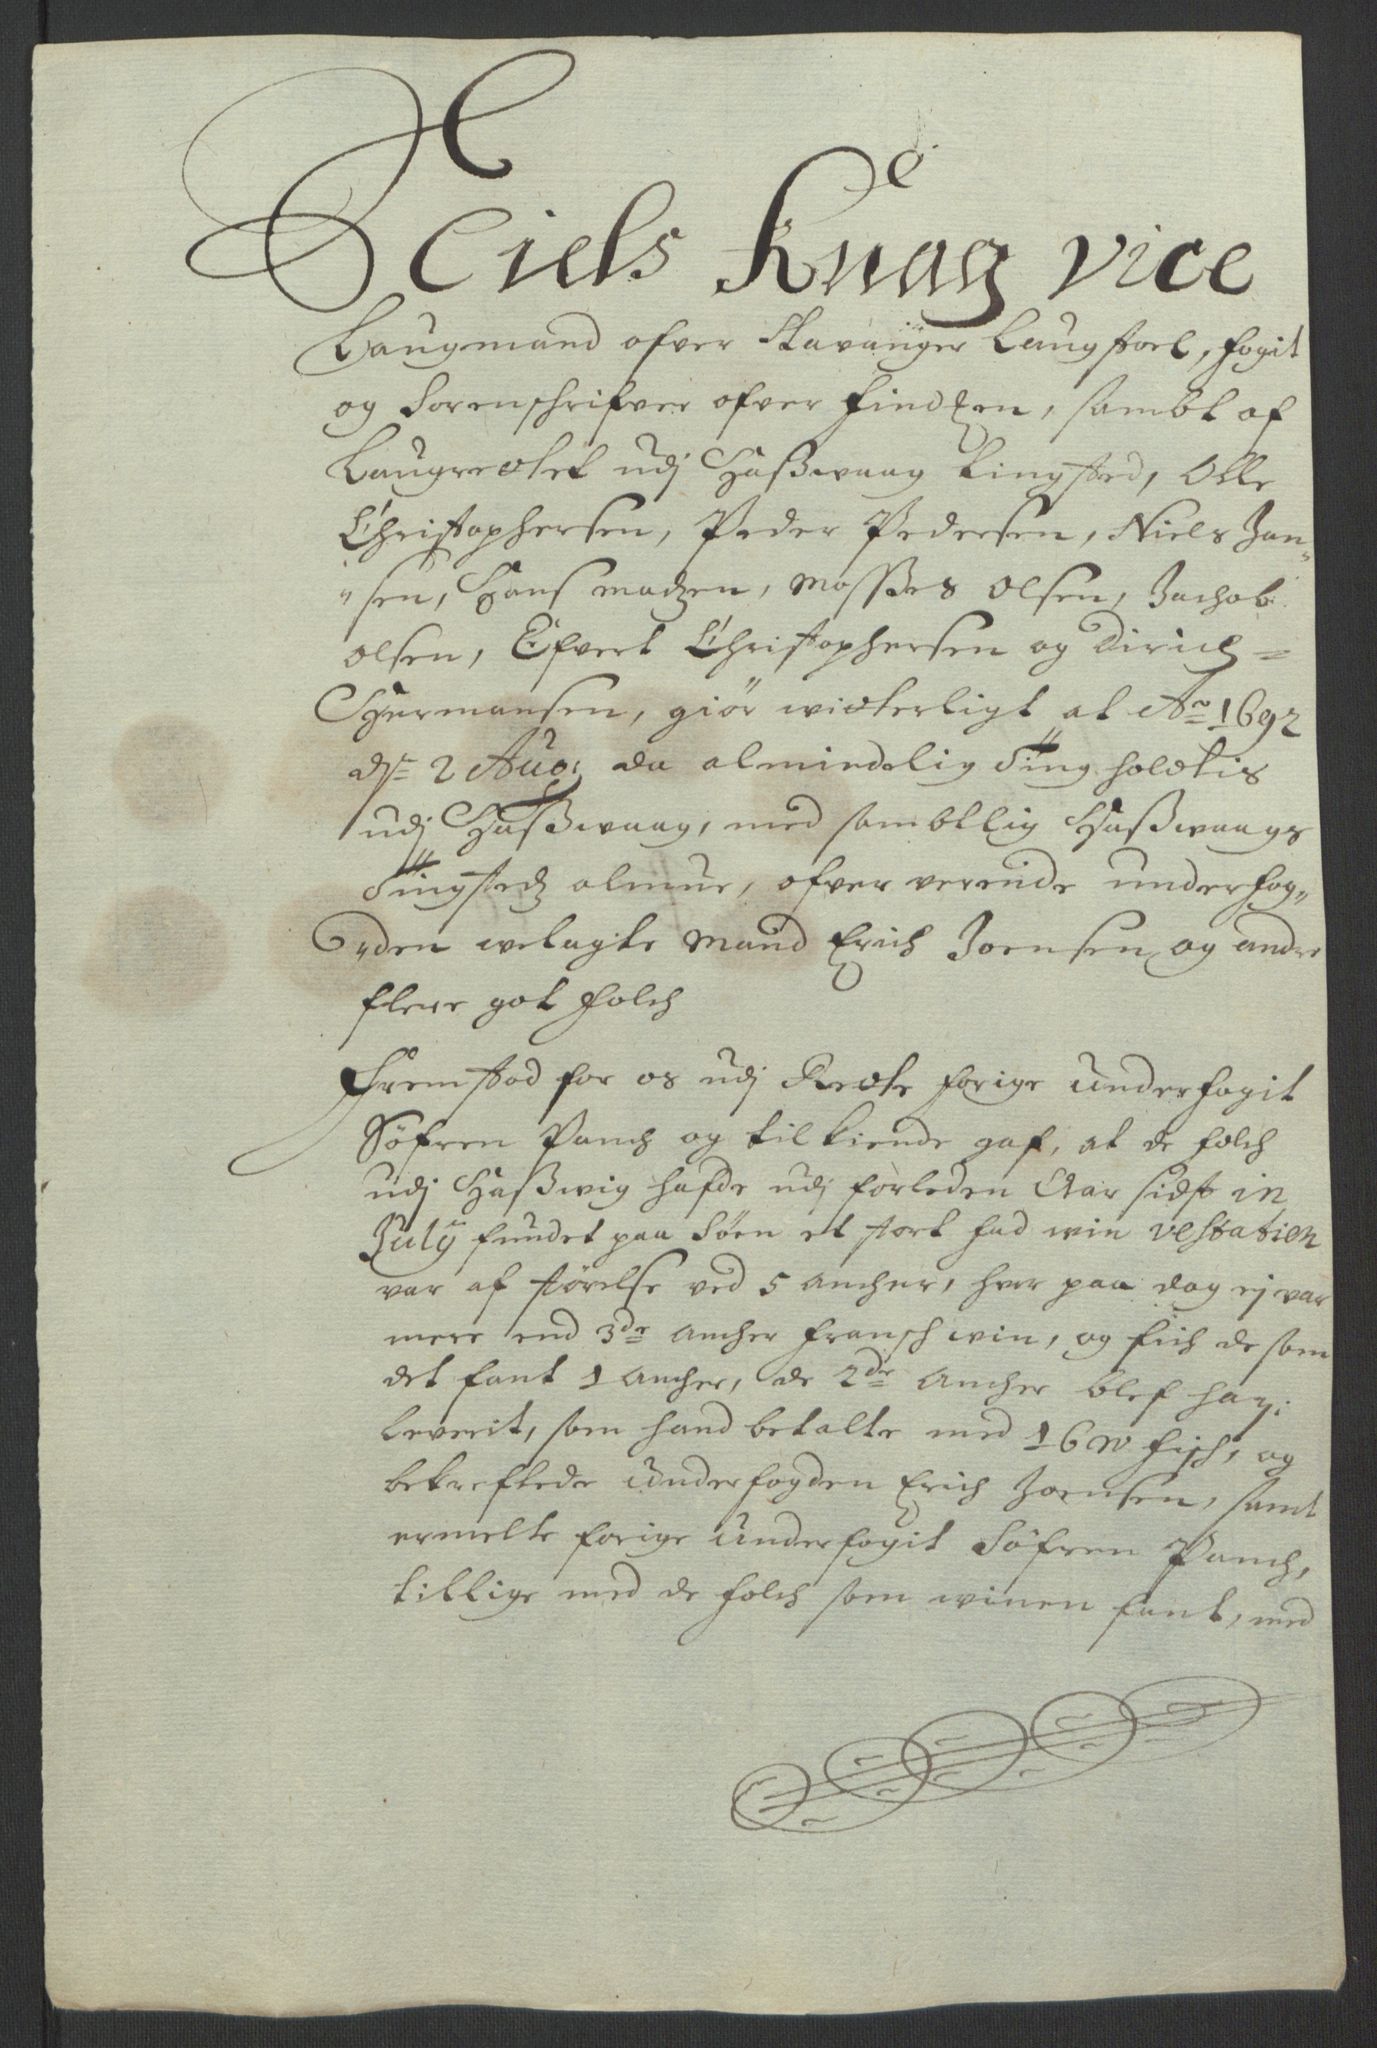 Niels Knag vice
Laugmand ofver Stavanger Laugstoel, fogit
og Sorenschrifver ofver Findmarchen, sambt af
Laugrettet udj Haßwaag tingsted, Olle
Christophersen, Peder Pedersen, Niels Jan„
„sen, Hans Madzen, Mosses Olsen, Jachob
Olsen, Efvert Christophersen og Dirich =
Hermansen, giør witterligt at Ao 1692
dn 2 Aug: da almindelig Ting holdtis
udj Haßwaag, med sambtlig Haßwaags
Tingstedz almue, ofver verende underfog„
„den welagte Mand Erich Joensen og andre
flere got folch
Fremstod for os udj Rette forige underfogit
Søfren Panch og tilkiende gaf, at de folch
udj Haßwig hafde udj forleden Aar sidst in
July fundet paa Søen et stort fad win
var af størelse ved 5 ancher, hvor paa dog ej var
mere end 3de ancher fransch win, og fich de som
det fant 1 ancher, de 2de ancher blef ham
leverit, som hand betalte med 16 w fisch, og
bekreftede underfogden Erich Joensen, samt
ermelte forige underfogit Søfren Panch,
tillige med de folch som winen fant, med